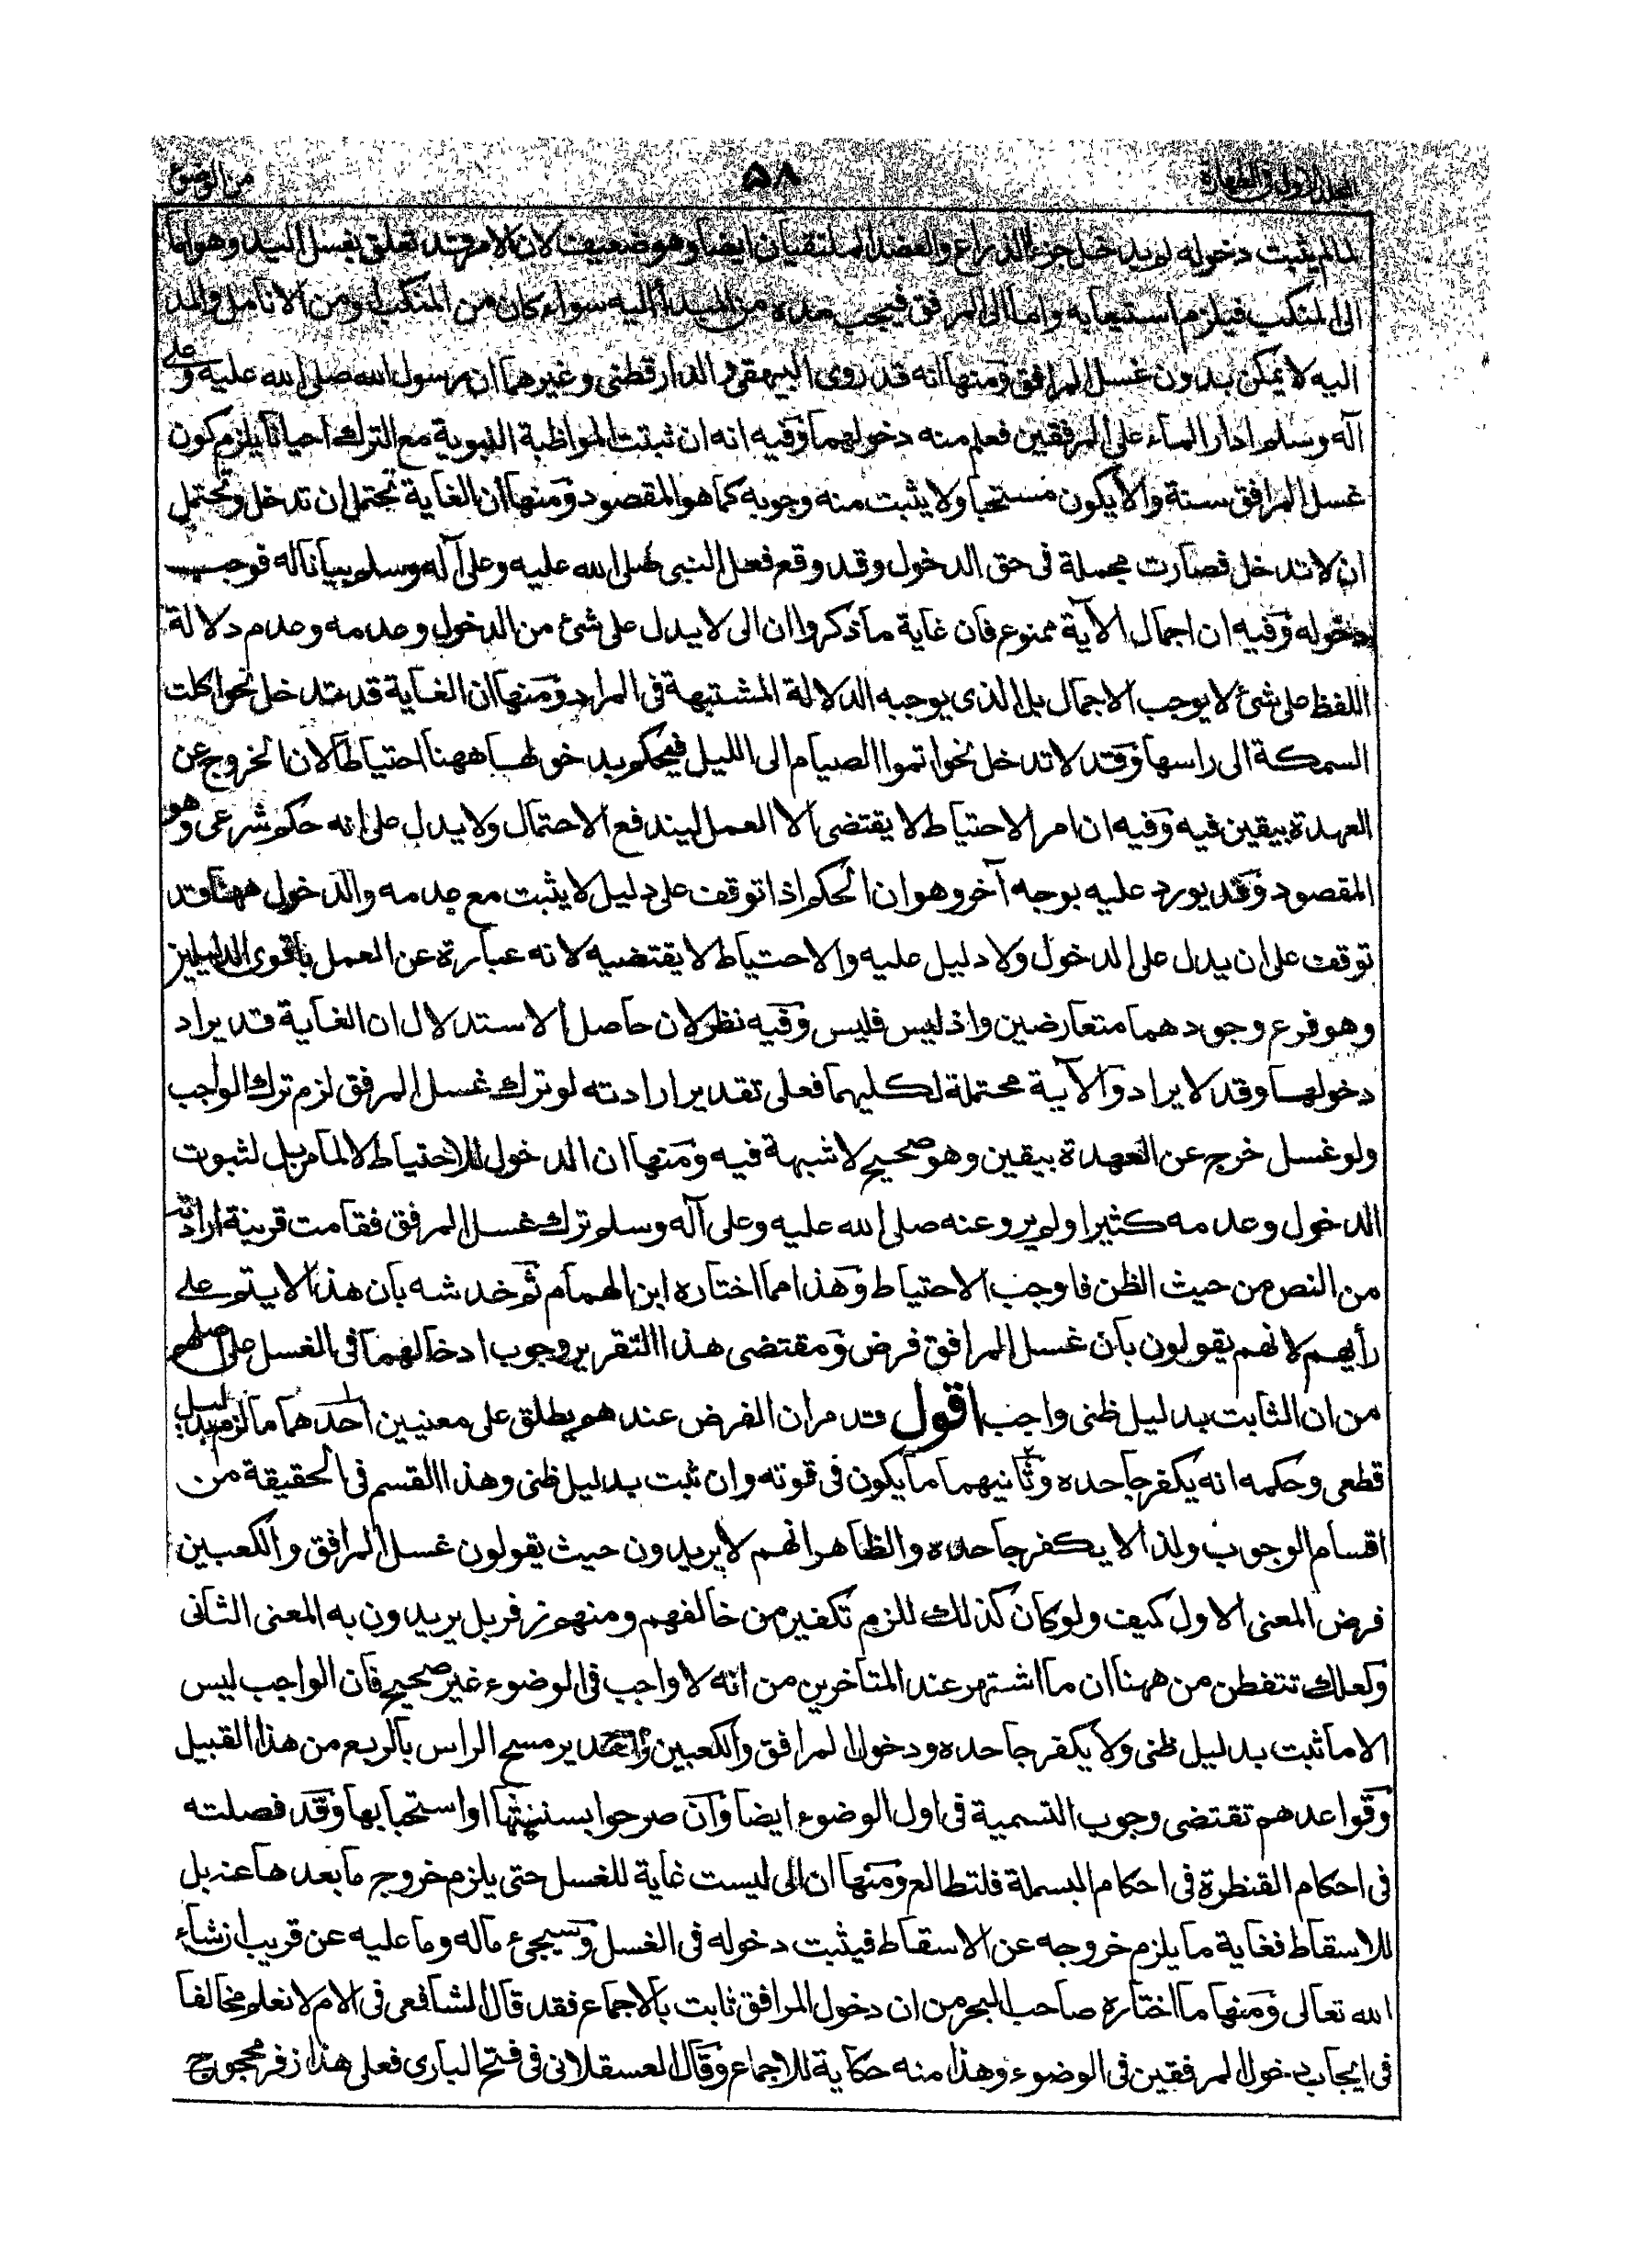 المجلد الاول فى الطهارة ٥٨ من الوضوء
لما لم يثبت دخوله لم يدخل جزء الذراع والعضد الملتقيان ايضا وهو ضعيف لان الامر قد تعلق بغسل اليد وهو اما
الى المنكب فيلزم استيعابه واما الى المرفق فيجب مده من المبدأ اليه سواء كان من المنكب او من الانامل والمد
اليه لا يمكن بدون غسل المرافق ومنها انه قد روى البيهقى و الدارقطنى وغيرهما ان رسول الله صلى الله عليه وعلى
آله وسلم ادار الماء على المرفقين فعلم منه دخولهما وفيه انه ان ثبتت المواظبة النبوية مع الترك احيانا يلزم كون
غسل المرافق سنة والا يكون مستحبا ولا يثبت منه وجوبه كما هو المقصود ومنها ان الغاية تحتمل ان تدخل وتحتمل
ان لا تدخل فصارت مجملة فى حق الدخول وقد وقع فعل النبى صلى الله عليه وعلى آله وسلم بيانا له فوجب
دخوله وفيه ان اجمال الآية ممنوع فان غاية ما ذكروا ان الى لا يدل على شئ من الدخول وعدمه وعدم دلالة
اللفظ على شئ لا يوجب الاجمال بل الذى يوجبه الدلالة المشتبهة فى المراد ومنها ان الغاية قد تدخل نحو اكلت
السمكة الى راسها وقد لا تدخل نحو اتموا الصيام الى الليل فيحكم بدخولها ههنا احتياطا لان الخروج عن
العهدة بيقين فيه وفيه ان امر الاحتياط لا يقتضى الا العمل ليندفع الاحتمال ولا يدل على انه حكم شرعى وهو
المقصود وقد يورد عليه بوجه آخر وهو ان الحكم اذا توقف على دليل لا يثبت مع عدمه والدخول ههنا قد
توقف على ان يدل على الدخول ولا دليل عليه والاحتياط لا يقتضيه لانه عبارة عن العمل باقوى الدليلين
وهو فرع وجودهما متعارضين واذ ليس فليس وفيه نظر لان حاصل الاستدلال ان الغاية قد يراد
دخولها وقد لا يراد والآية محتملة لكليهما فعلى تقدير ارادته لو ترك غسل المرفق لزم ترك الواجب
ولو غسل خرج عن العهدة بيقين وهو صحيح لا شبهة فيه ومنها ان الدخول للاحتياط لا لما مر بل لثبوت
الدخول وعدمه كثيرا ولم يرو عنه صلى الله عليه وعلى آله وسلم ترك غسل المرفق فقامت قرينة ارادته
من النص من حيث الظن فاوجب الاحتياط وهذا مما اختاره ابن الهمام ثم خدشه بان هذا لا يتم على
رأيهم لانهم يقولون بان غسل المرافق فرض ومقتضى هذا التقرير وجوب ادخالهما فى الغسل على اصلهم
من ان الثابت بدليل ظنى واجب اقول قد مر ان الفرض عندهم يطلق على معنيين احدهما ما لزم بدليل
قطعى وحكمه انه يكفر جاحده وثانيهما ما يكون فى قوته وان ثبت بدليل ظنى وهذا القسم فى الحقيقة من
اقسام الوجوب ولذا لا يكفر جاحده والظاهر انهم لا يريدون حيث يقولون غسل المرافق والكعبين
فرض المعنى الاول كيف ولو كان كذلك للزم تكفير من خالفهم ومنهم زفر بل يريدون به المعنى الثانى
ولعلك تتفطن من ههنا ان ما اشتهر عند المتاخرين من انه لا واجب فى الوضوء غير صحيح فان الواجب ليس
الا ما ثبت بدليل ظنى ولا يكفر جاحده ودخول المرافق والكعبين وتقدير مسح الراس بالربع من هذا القبيل
وقواعدهم تقتضى وجوب التسمية فى اول الوضوء ايضا وان صرحوا بسنيتها او استحبابها وقد فصلته
فى احكام القنطرة فى احكام البسملة فلتطالع ومنها ان الى ليست غاية للغسل حتى يلزم خروج ما بعدها عنه بل
للاسقاط فغاية ما يلزم خروجه عن الاسقاط فيثبت دخوله فى الغسل وسيجئ ماله وما عليه عن قريب ان شاء
الله تعالى ومنها ما اختاره صاحب البحر من ان دخول المرافق ثابت بالاجماع فقد قال الشافعى فى الام لا نعلم مخالفا
فى ايجاب دخول المرفقين فى الوضوء وهذا منه حكاية للاجماع وقال العسقلانى فى فتح البارى فعلى هذا زفر محجوج